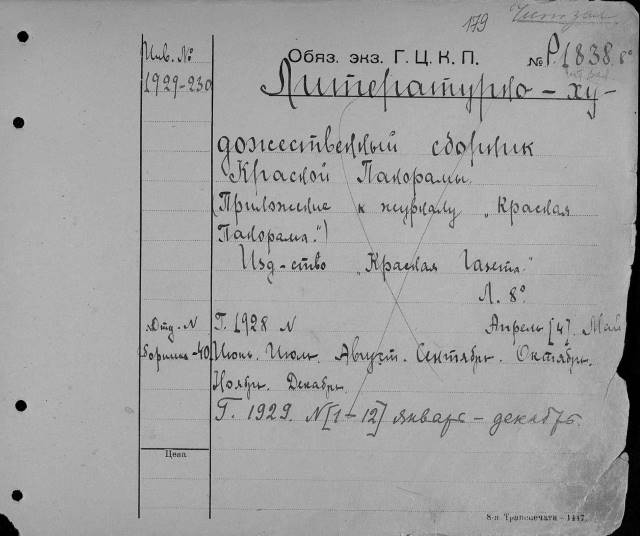 179 Чит. зал.
Инв. №
1929-230
Обяз. экз. Г. Ц. К. П. № Р.1838.8°
Литературно-ху-
дожественный сборник
Красной Панорамы.
(Приложение к журналу „Красная
Панорама.")
Изд-ство „Красная Газета."
Л. 8°
Отд. N Г. 1928 N Апрель [4]. Май
40 Июнь. Июль. Август. Сентябрь. Октябрь.
Ноябрь. Декабрь.
Г. 1929. N [1-12] январь - декабрь.
Цена
8-я Транспечати — 1447